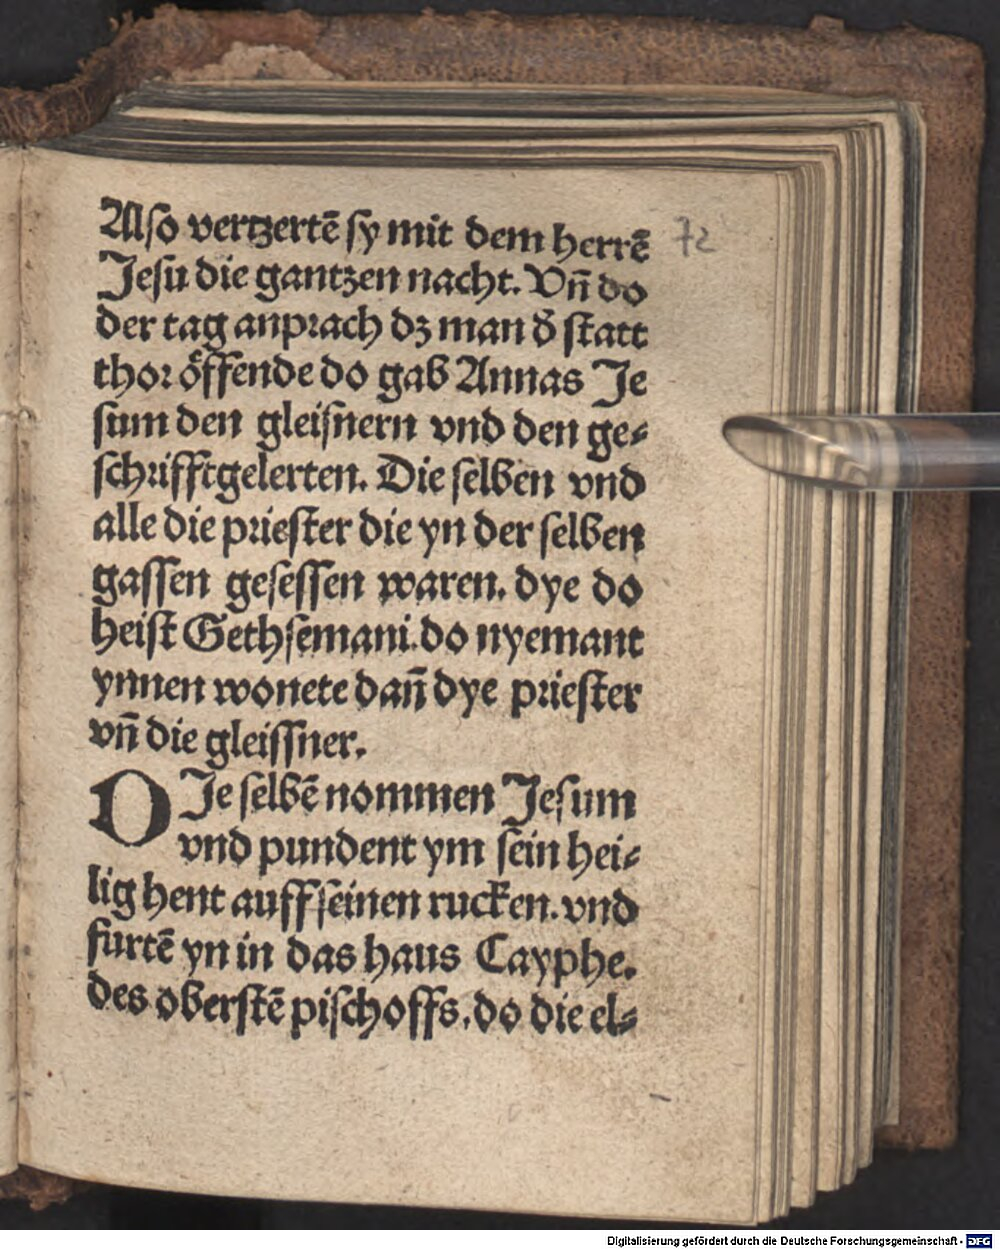 Also vertzertē sy mit dem herrē
Jesu die gantzen nacht. Vn̄ do
der tag anprach dz man d̕ statt
thor oͤffende do gab Annas Je
sum den gleisnern vnd den ge⸗
schrifftgelerten. Die selben vnd
alle die priester die yn der selben
gassen gesessen waren. dye do
heist Gethsemani. do nyemant
ynnen wonete dan̄ dye priester
vn̄ die gleissner.
DIe selbē nommen Jesum
vnd pundent ym sein hei⸗
lig hent auff seinen rucken. vnd
furtē yn in das haus Cayphe.
des oberstē pischoffs. do die el⸗
72
Digitalisierung gefördert durch die Deutsche Forschungsgemeinschaft - DFG